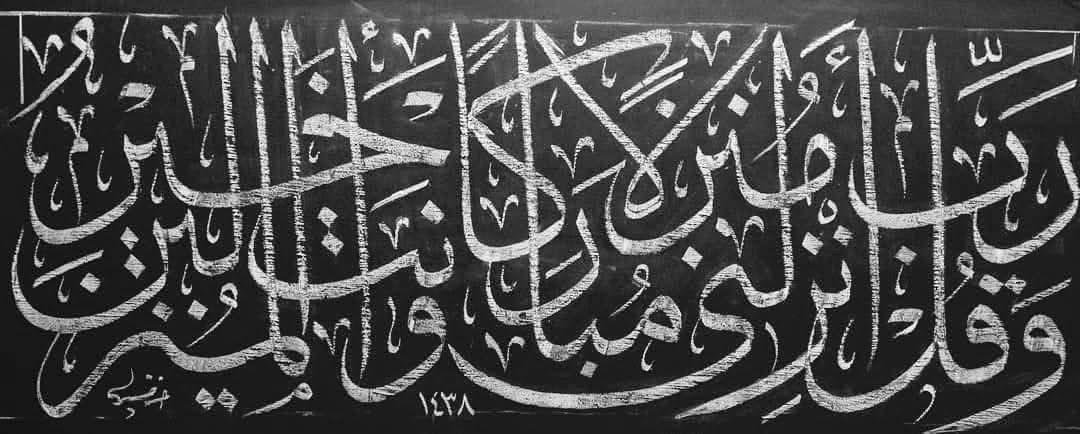 وَقُل رَّبِّ أَنزِلْنِي مُنزَلًا مُّبَارَكًا وَأَنتَ خَيْرُ الْمُنزِلِينَ
١٤٣٨